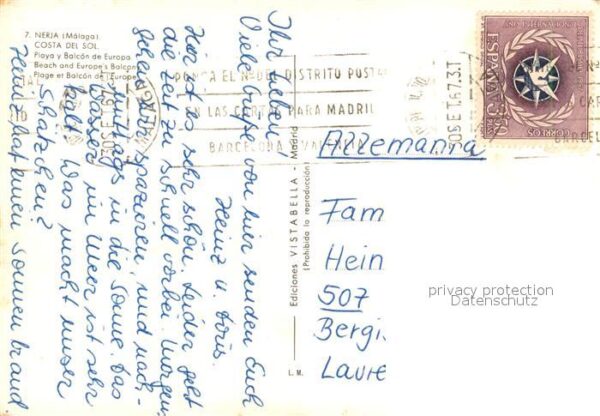 7. NERJA (Málaga)
COSTA DEL SOL.
Playa y Balcón de Europa
Beach and Europe's Balcon
Plage et Balcón de l'Europe
PONGA EL Nº DEL DISTRITO POSTAL
EN LAS CARTAS PARA MADRID
BARCELONA Y VALENCIA
30 SET. 67.3.T
CORREOS
ESPAÑA
Ihr Lieben
Viele Grüße von hier senden Euch
Heinz u. Doris.
Hier ist es sehr schön. Leider geht
die Zeit zu schnell vorbei. Morgens
gehen wir spazieren, und nach-
mittags in die Sonne. Das
Wasser im Meer ist sehr
kalt. Was macht unser
Schätzchen?
Heinz hat einen Sonnenbrand
Ediciones VISTABELLA - Madrid
(Prohibida la reproducción)
L. M.
Allemania
Fam
Hein
507
Bergi.
Laure
privacy protection
Datenschutz